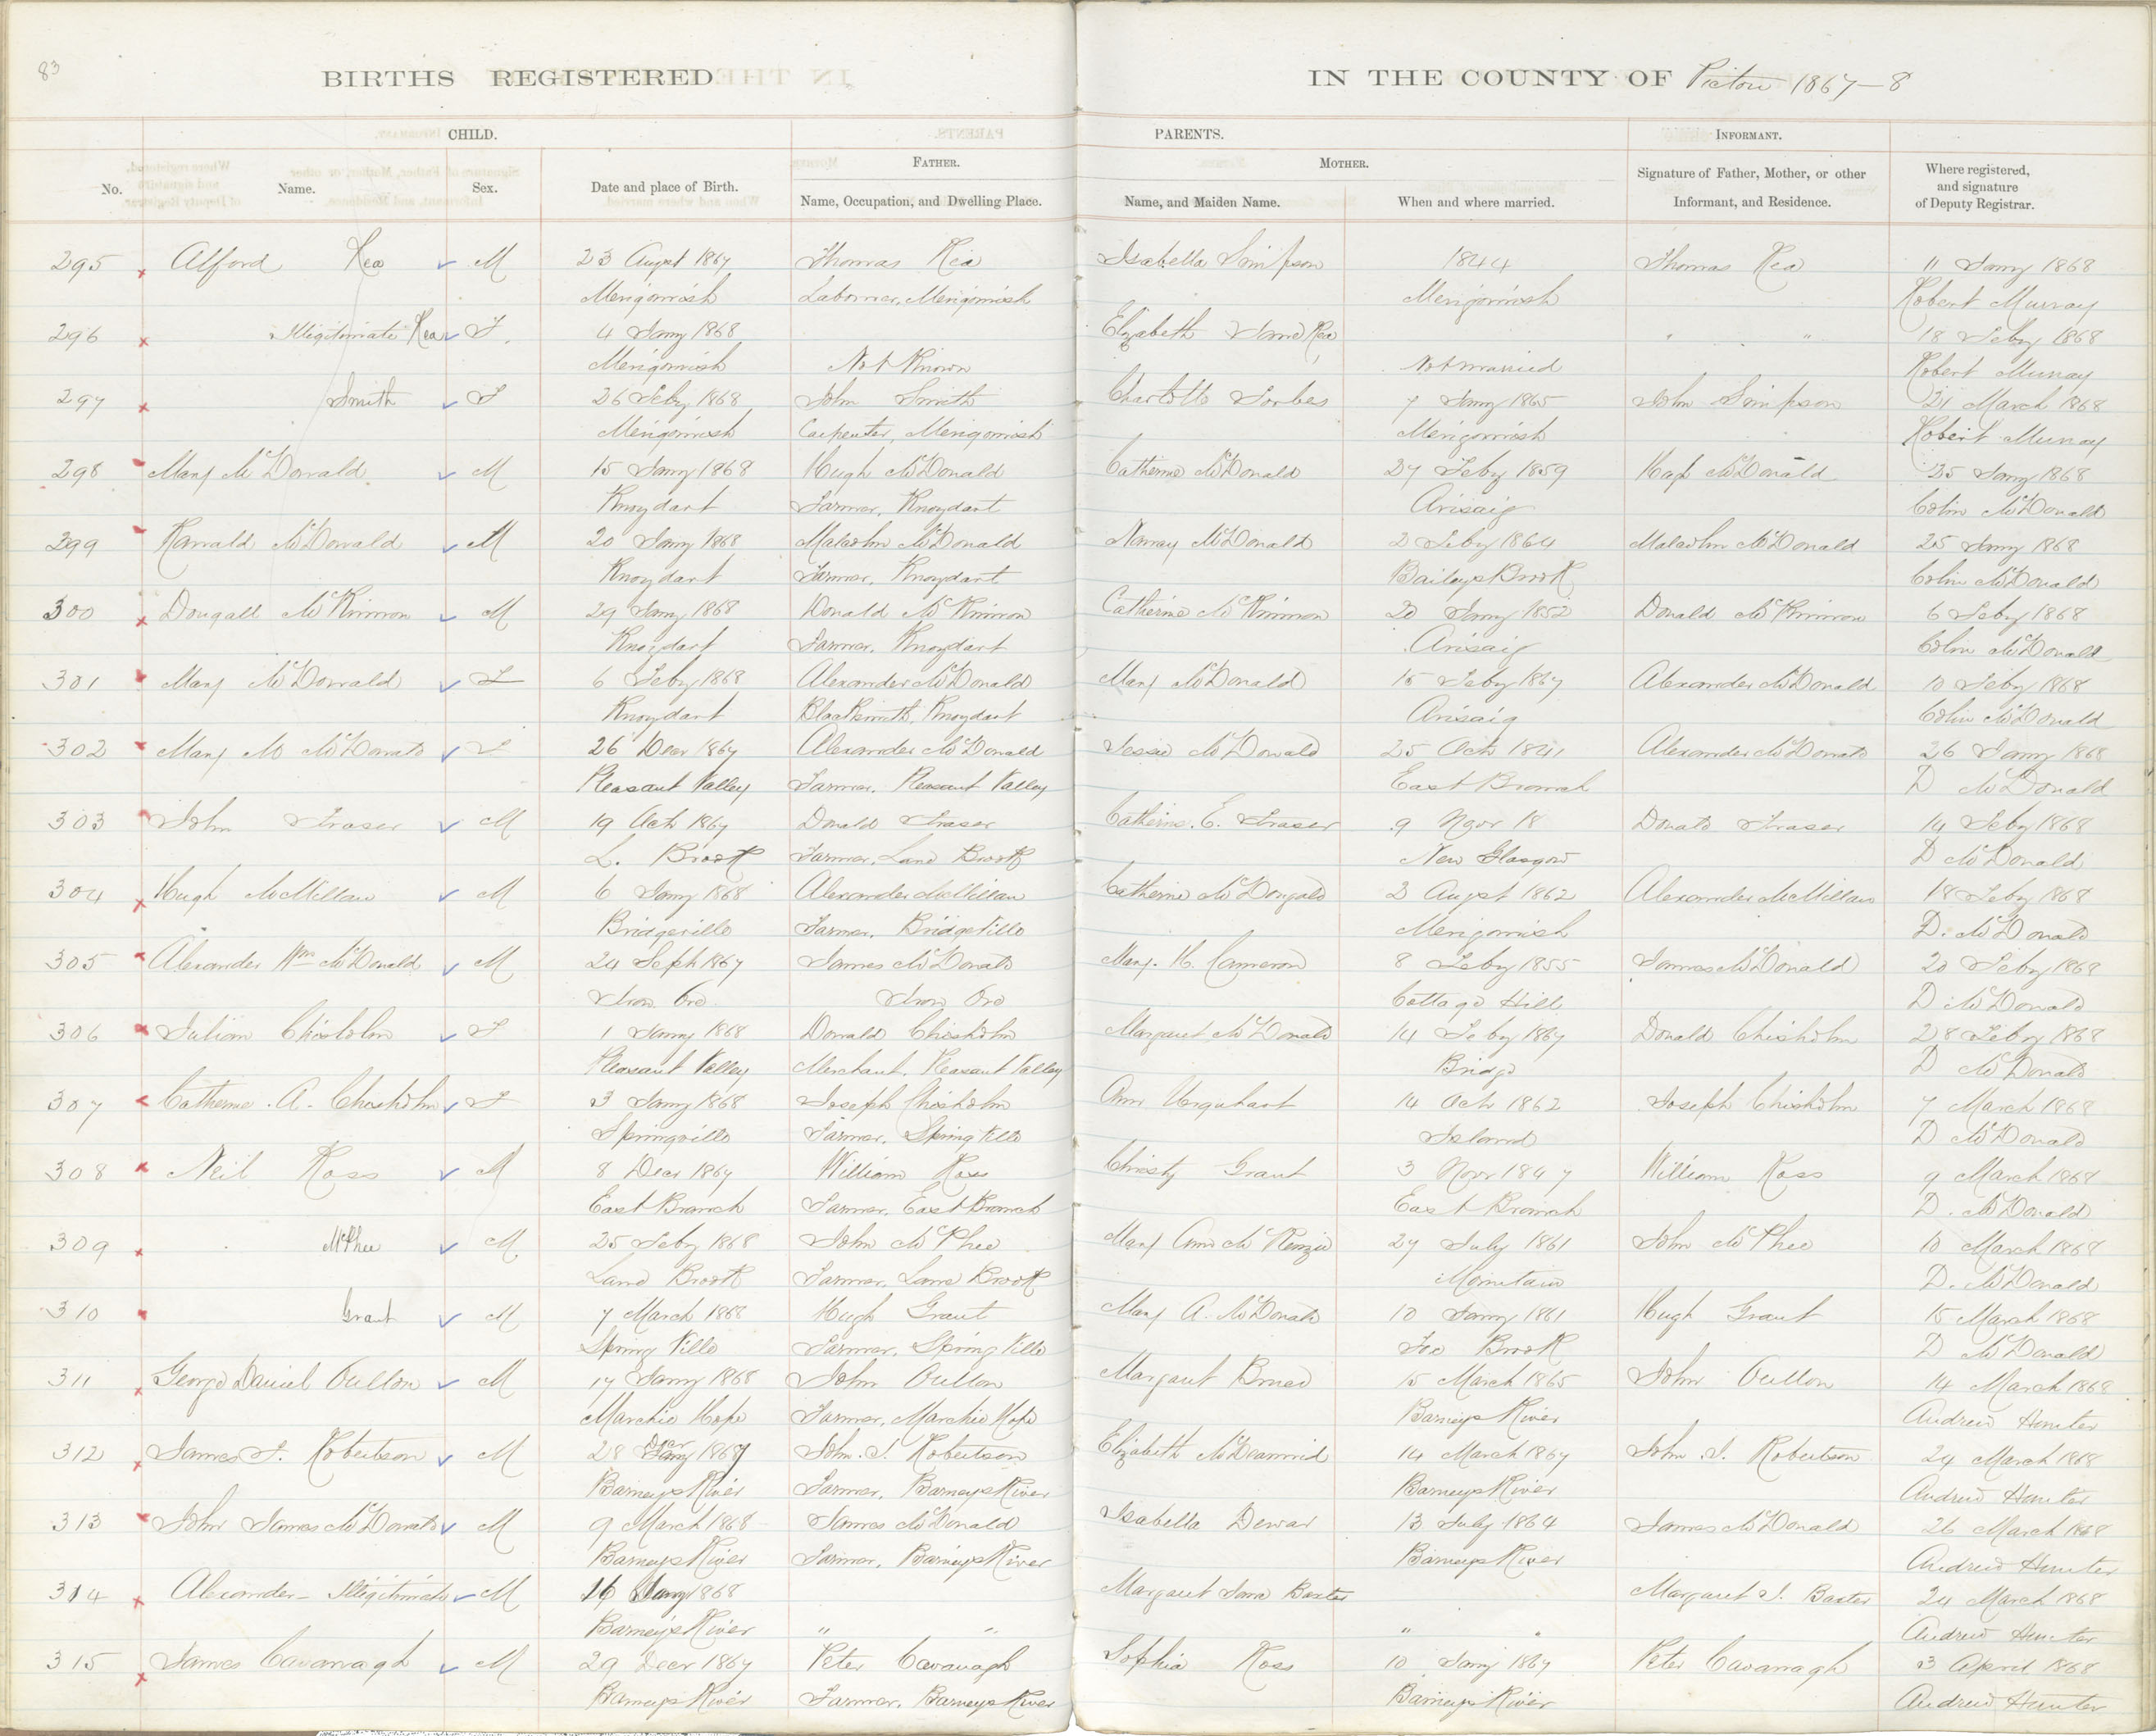 83
BIRTHS REGISTERED IN THE COUNTY OF Pictou 1867–8
CHILD. PARENTS. INFORMANT.
FATHER. MOTHER.
No. Name. Sex. Date and place of Birth. Name, Occupation, and Dwelling Place. Name, and Maiden Name. When and where married. Signature of Father, Mother, or other Informant, and Residence. Where registered, and signature of Deputy Registrar.
295 Alford Rea M 23 Augst 1867 Thomas Rea Isabella Simpson 1844 Thomas Rea 11 Jany 1868
Merigomish Laborer, Merigomish Merigomish Robert Murray
296 Illigitimate Rea F. 4 Jany 1868 Elizabeth Jane Rea " " 18 Feby 1868
Merigomish Not Known Not married Robert Murray
297 Smith F 26 Feby 1868 John Smith Charlotte Forbes 7 Jany 1865 John Simpson 31 March 1868
Merigomish Carpenter, Merigomish Merigomish Robert Murray
298 Mary McDonald M 15 Jany 1868 Hugh McDonald Catherine McDonald 27 Feby 1859 McDonald 25 Jany 1868
Knoydart Farmer, Knoydart Arisaig Colin McDonald
299 Ranald McDonald M 20 Jany 1868 Malcolm McDonald Nancy McDonald 2 Feby 1864 Malcolm McDonald 25 Jany 1868
Knoydart Farmer, Knoydart Baileys Brook Colin McDonald
300 Dougall McKinnon M 29 Jany 1868 Donald McKinnon Catherine McKinnon 20 Jany 1852 Donald McKinnon 6 Feby 1868
Knoydart Farmer, Knoydart Arisaig Colin McDonald
301 Mary McDonald F 6 Feby 1868 Alexander McDonald Mary McDonald 15 Feby 1867 Alexander McDonald 10 Feby 1868
Knoydart Blacksmith, Knoydart Arisaig Colin McDonald
302 Mary M McDonald F 26 Decr 1867 Alexander McDonald Jessie McDonald 25 Octr 1841 Alexander McDonald 26 Jany 1868
Pleasant Valley Farmer, Pleasant Valley East Branch D McDonald
303 John Fraser M 19 Octr 1867 Donald Fraser Catherine. E. Fraser 9 Novr 18 Donald Fraser 14 Feby 1868
L. Brook Farmer, Land Brook New Glasgow D McDonald
304 Hugh McMillan M 6 Jany 1868 Alexander McMillan Catherine McDougald 2 Augst 1862 Alexander McMillan 18 Feby 1868
Bridgeville Farmer, Bridgeville Merigomish D. McDonald
305 Alexander Wm McDonald M 24 Septr 1867 James McDonald Mary. H. Cameron 8 Feby 1855 James McDonald 20 Feby 1868
Iron Ore. Iron Ore Cottage Hill D McDonald
306 Juliann Chisholm F 1 Jany 1868 Donald Chisholm Margaret McDonald 14 Feby 1867 Donald Chisholm 28 Feby 1868
Pleasant Valley Merchant, Pleasant Valley Bridge D McDonald
307 Catherine. A. Chisholm F 3 Jany 1868 Joseph Chisholm Ann Urquhart 14 Octr 1862 Joseph Chisholm 7 March 1868
Springville Farmer, Spring Ville Island D McDonald
308 Neil Ross M 8 Decr 1867 William Ross Christy Grant 3 Novr 1847 William Ross 9 March 1868
East Branch Farmer, East Branch East Branch D. McDonald
309 McPhee M 25 Feby 1868 John McPhee Mary Ann McKenzie 27 July 1861 John McPhee 10 March 1868
Land Brook Farmer, Land Brook Mountain D. McDonald
310 Grant M 7 March 1868 Hugh Grant Mary A. McDonald 10 Jany 1861 Hugh Grant 15 March 1868
Spring Ville Farmer, Spring Ville Fox Brook D McDonald
311 George Daniel Oullon M 17 Jany 1868 John Oullon Margaret 15 March 1865 John Oullon 14 March 1868
Marchie Hope Farmer, Marchie Hope Barneys River Andrew Hunter
312 James J. Robertson M 28 Decr 1867 John. J. Robertson Elizabeth McDearmid 14 March 1867 John. J. Robertson 24 March 1868
Barneys River Farmer, Barneys River Barneys River Andrew Hunter
313 John James McDonald M 9 March 1868 James McDonald Isabella Dewar 13 July 1864 James McDonald 26 March 1868
Barneys River Farmer, Barneys River Barneys River Andrew Hunter
314 Alexander – Illigitimate M 16 Jany 1868 Margaret Jane Baxter Margaret J. Baxter 24 March 1868
Barneys River " " " " Andrew Hunter
315 James Cavanagh M 29 Decr 1867 Peter Cavanagh Sophia Ross 10 Jany 1867 Peter Cavanagh 3 April 1868
Barneys River Farmer, Barneys River Barneys River Andrew Hunter